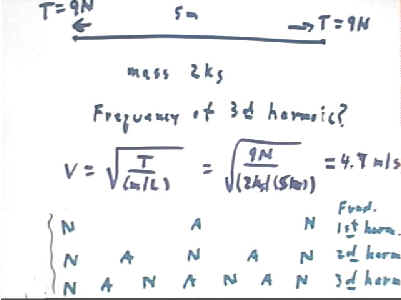 T=9N 5m T=9N
mass 2kg
Frequency of 3d harmoic?
V = √(T/(m/L)) = √(9N/(2kg/(5m))) = 4.7 m/s
Fund.
N A N 1st harm.
N A N A N 2d harm
N A N A N A N 3d harm